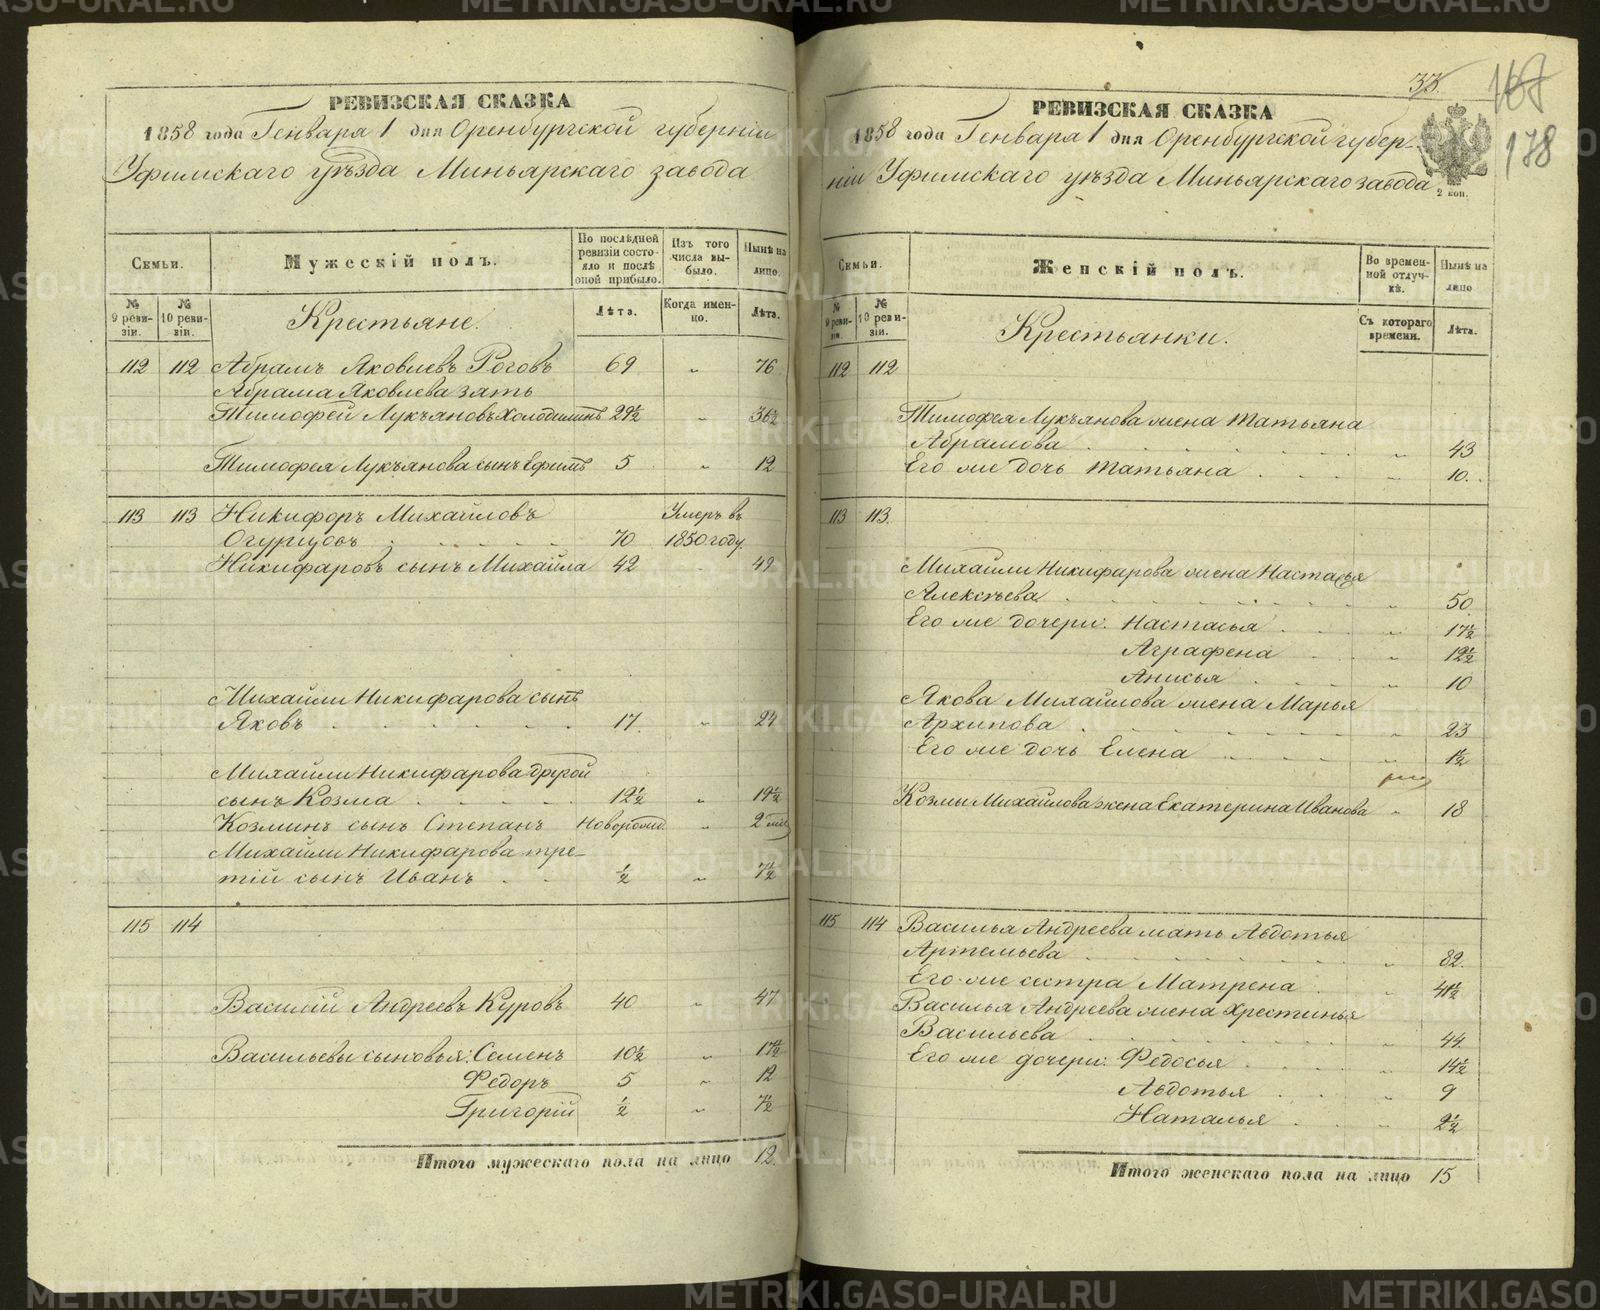 РЕВИЗСКАЯ СКАЗКА
1858 года Генваря 1 дня Оренбургской губерніи
Уфимскаго уѣзда Миньярскаго завода
Семьи.
Мужескій полъ.
По послѣдней ревизіи состояло и послѣ оной прибыло.
Изъ того числа выбыло.
Нынѣ на лицо.
№ 9 ревизіи.
№ 10 ревизіи.
Крестьяне.
Лѣта.
Когда именно.
Лѣта.
112 112 Абрамъ Яковлевъ Роговъ 69 „ 76
Абрама Яковлева зять
Тимофей Лукъяновъ Холодилинъ 29½ „ 36½
Тимофея Лукъянова сынъ Ефимъ 5 „ 12
113 113 Никифоръ Михайловъ Умеръ въ
Огурцовъ 70 1850 году
Никифаровъ сынъ Михайла 42 „ 49
Михайлы Никифарова сынъ
Яковъ 17 „ 24
Михайлы Никифарова другой
сынъ Козма 12½ „ 19½
Козминъ сынъ Степанъ Новорожд. „ 2 мѣс
Михайлы Никифарова тре-
тій сынъ Иванъ ½ „ 7½
115 114
Василій Андреевъ Куровъ 40 „ 47
Васильевы сыновья: Семенъ 10½ „ 17½
Федоръ 5 „ 12
Григорій ½ „ 7½
Итого мужескаго пола на лицо 12
33
167
178
РЕВИЗСКАЯ СКАЗКА
1858 года Генваря 1 дня Оренбургской губер-
ніи Уфимскаго уѣзда Миньярскаго завода
2 коп.
Семьи.
Женскій полъ.
Во временной отлучкѣ.
Нынѣ на лицо
№ 9 ревизіи.
№ 10 ревизіи.
Крестьянки.
Съ котораго времени.
Лѣта.
112 112
Тимофея Лукъянова жена Татьяна
Абрамова „ 43
Его же дочь Татьяна „ 10
113 113
Михайлы Никифарова жена Настасья
Алексѣева „ 50
Его же дочери: Настасья „ 17½
Аграфена „ 12½
Анисья „ 10
Якова Михайлова жена Марья
Архипова „ 23
Его же дочь Елена „ 1½
Козмы Михайлова жена Екатерина Иванова „ 18
115 114 Василья Андреева мать Авдотья
Артемьева „ 82
Его же сестра Матрена „ 41½
Василья Андреева жена Хрестинья
Васильева „ 44
Его же дочери: Федосья „ 14½
Авдотья „ 9
Наталья „ 2½
Итого женскаго пола на лицо 15
METRIKI.GASO-URAL.RU